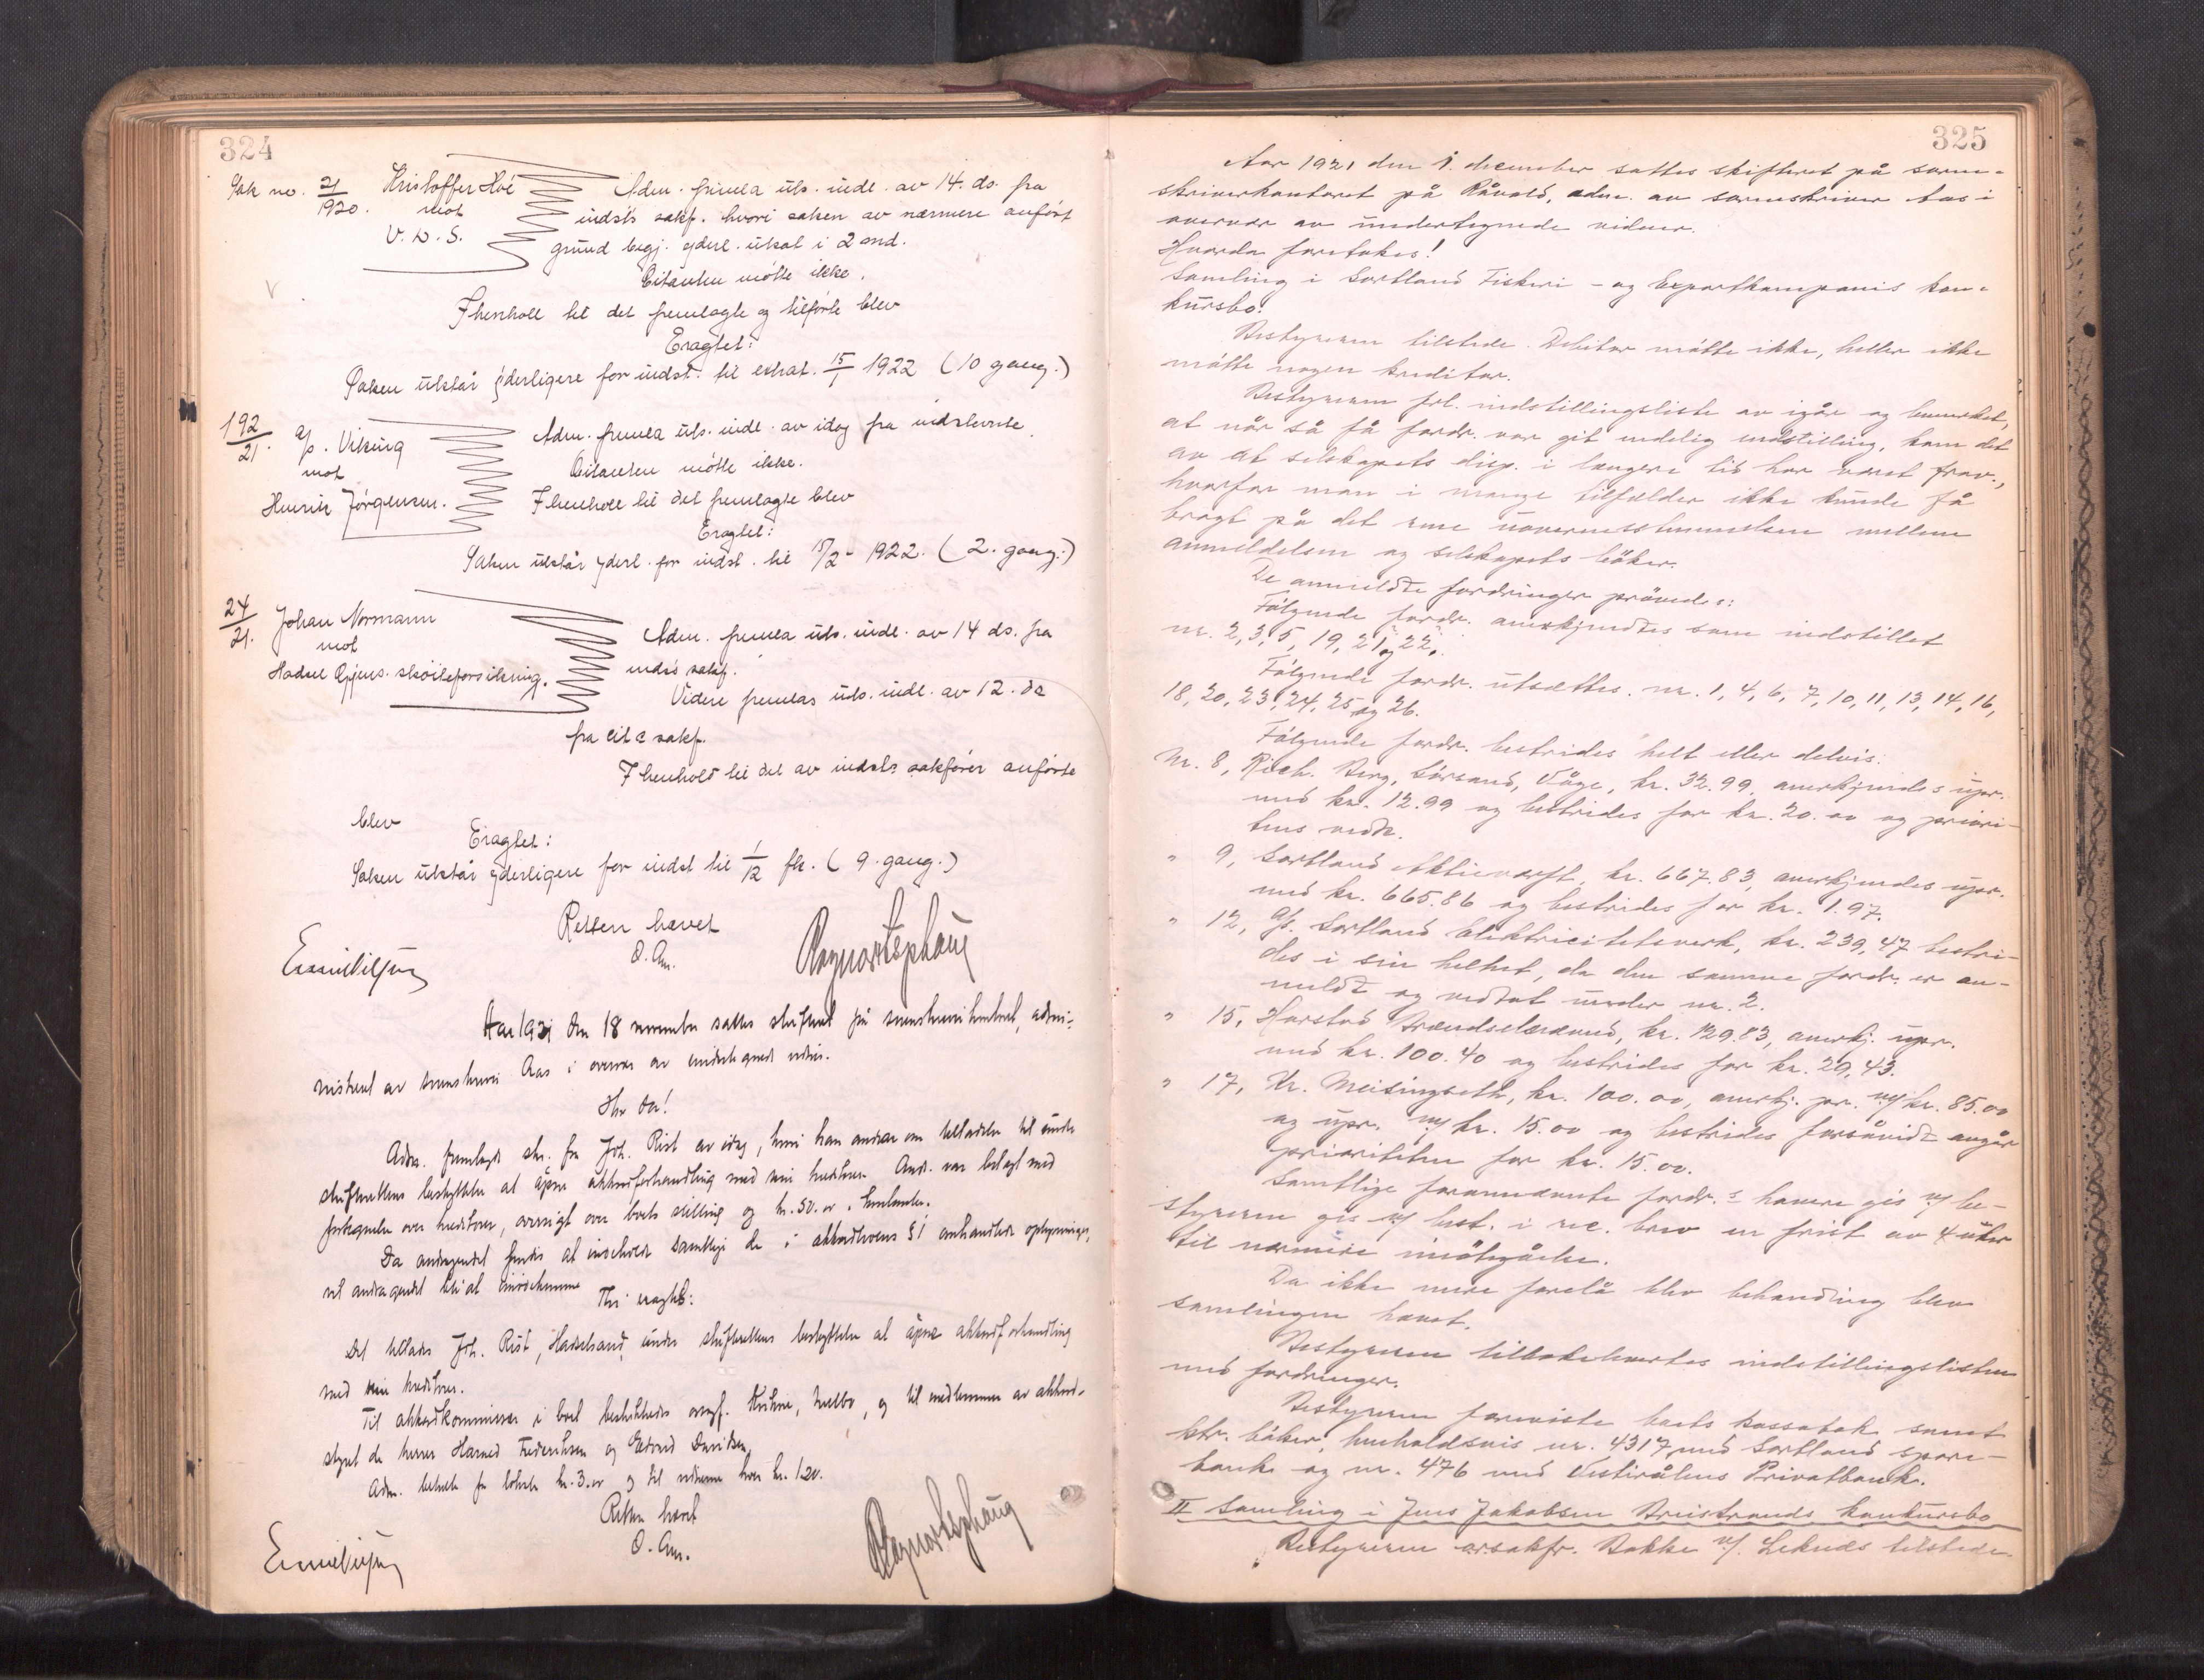 324
Sak no. 21/1920. Kristoffer Hoé
mot
V. D. S.
Adm. fremla uts. indl. av 14. ds. fra
indst's sakf. hvori saken av nærmere anført
grund begj. yderl. utsat i 2 mnd.
Citanten møtte ikke.
I henhold til det fremlagte og tilførte blev
Eragtet:
Saken utstår yderligere for indst. til extrat. 15/1 1922 (10 gang.)
192/21. A/s. Viking
mot
Henrik Jørgensen.
Adm. fremla uts. indl. av idag fra indstevnte.
Citanten møtte ikke.
I henhold til det fremlagte blev
Eragtet:
Saken utstår yderl. for indst. til 15/2 - 1922. (2. gang.)
24/21. Johan Normann
mot
Hadsel Gjens. skøiteforsikring.
Adm. fremla uts. indl. av 14 ds. fra
inds's sakf.
Videre fremlas uts. indl. av 12. ds
fra cit s sakf.
I henhold til det av indsts sakfører anførte
blev
Eragtet:
Saken utstår yderligere for indst til 1/12 fk. (9. gang.)
Retten hævet
O. Aas.
Ragnar Esphaug
Aar 1921 den 18 november sattes skifteret på sorenskriverkontoret, admi-
nistreret av sorenskriver Aas i overvær av undertegnede vidner.
Hvorda!
Adm. fremlagde skr. fra Joh. Rist av idag, hvori han andrar om tilladelse til under
skifterettens beskyttelse at åpne akkordforhandling med sine kreditorer. Andr. var bilagt med
fortegnelse over kreditorer, oversigt over boets stilling og kr. 50.00 i
Da andragendet findes at indeholde samtlige de i akkordlovens § 1 omhandlede oplysninger,
vil andragendet bli at imøtekomme
Thi eragtes:
Det tillades Joh. Rist, Hadselsand, under skifterettens beskyttelse at åpne akkordforhandling
med sine kreditorer.
Til akkordkommissær i boet beskikkedes Melbo, og til medlemmer av akkord-
styret de herrer Frederiksen og Edvard Davidsen,
Adm. betalt for kr. 3.00 og til vidnerne hver kr. 1.20.
Retten hævet
O. Aas.
Ragnar Esphaug
325
Aar 1921 den 1. december sattes skifteret på soren-
skriverkontoret på Råvold, adm. av sorenskriver Aas i
overvær av undertegnede vidner.
Hvorda foretokes!
Samling i Sortland Fiskeri- og Exportkompanis kon-
kursbo!
Bestyreren tilstede. Debitor møtte ikke, heller ikke
møtte nogen kreditor.
Bestyreren frl. indstillingsliste av igår og bemerket,
at når så få fordr. var git endelig indstilling, kom det
av at selskapets disp. i længere tid har været frav.,
hvorfor man i mange tilfælder ikke kunde få
bragt på det rene uoverensstemmelsen mellem
anmeldelsen og selskapets bøker.
De anmeldte fordringer prøvedes:
Følgende fordr. anerkjendtes som indstillet
nr. 2, 3, 5, 19, 21 og 22.
Følgende fordr. utsættes. nr. 1, 4, 6, 7, 10, 11, 13, 14, 16,
18, 20, 23, 24, 25 og 26.
Følgende fordr. bestrides helt eller delvis:
Nr. 8, Rich. Berg, Sørsand, Våge, kr. 32.99, anerkjendes upr.
med kr. 12.99 og bestrides for kr. 20.00 og priori-
tens vedk.
" 9, Sortland Aktieverft, kr. 667.83, anerkjendes upr.
med kr. 665.86 og bestrides for kr. 1.97.
" 12, A/s. Sortland Elektricitetsverk, kr. 239,47 bestri-
des i sin helhet, da den samme fordr. er an-
meldt og vedtat under nr. 2.
" 15, Harstad Brændselsræmd, kr. 129.83, anerkj. upr.
med kr. 100.40 og bestrides for kr. 29,43.
" 17, Kr. Meisingseth, kr. 100.00, anerkj. pr. m/ kr. 85.00
og upr. m/ kr. 15.00 og bestrides forsåvidt angår
prioriteten for kr. 15.00.
Samtlige forannævnte fordr.s havere gis v/ be-
styreren gis v/ best. i rec. brev en frist av 4 uker
til nærmere imøtegåelse.
Da ikke mere forelå blev behandling blev
samlingen hævet.
Bestyreren tilbakelevertes indstillingslisten
med fordringer.
Bestyreren foreviste boets kassabok samt
ktr. bøker, henholdsvis nr. 4317 med Sortland spare-
bank og nr. 476 med Vesteraalens Privatbank.
II Samling i Jens Jakobsen Breistrands konkursbo
Bestyreren o.r.sakfr. Bakke v/. Leknes tilstede.